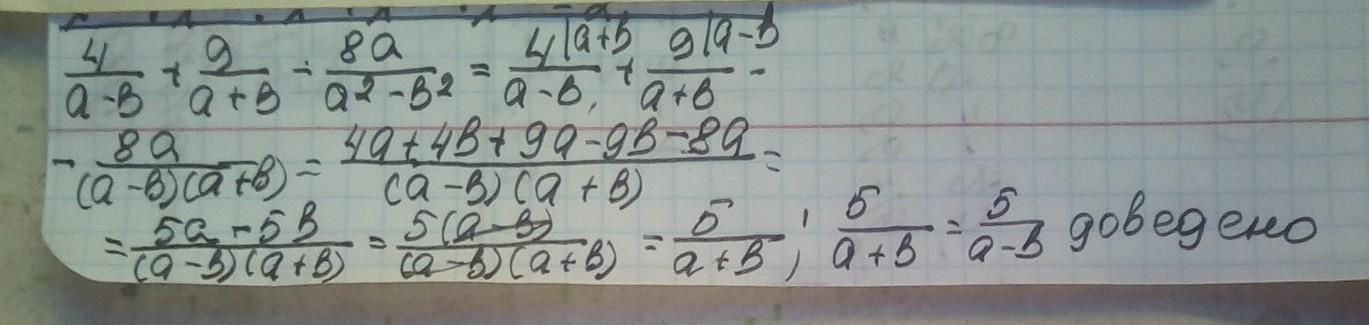 4/(a-b) + 9/(a+b) - 8a/(a²-b²) = 4|a+b/(a-b) + 9|a-b/(a+b) -
- 8a/((a-b)(a+b)) = (4a+4b+9a-9b-8a)/((a-b)(a+b)) =
= (5a-5b)/((a-b)(a+b)) = 5(a-b)/((a-b)(a+b)) = 5/(a+b) ; 5/(a+b) = 5/(a-b) доведено